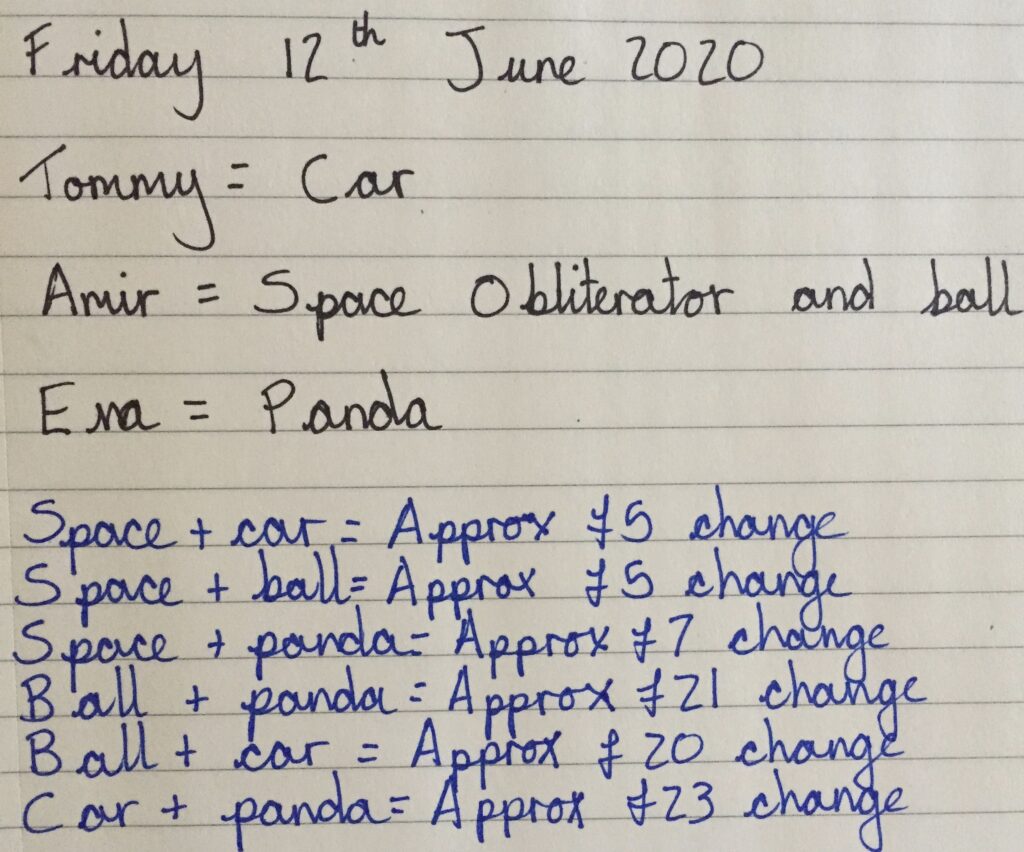 Friday 12th June 2020
Tommy = Car
Amir = Space Obliterator and ball
Eva = Panda
Space + car = Approx £5 change
Space + ball = Approx £5 change
Space + panda = Approx £7 change
Ball + panda = Approx £21 change
Ball + car = Approx £20 change
Car + panda = Approx £23 change